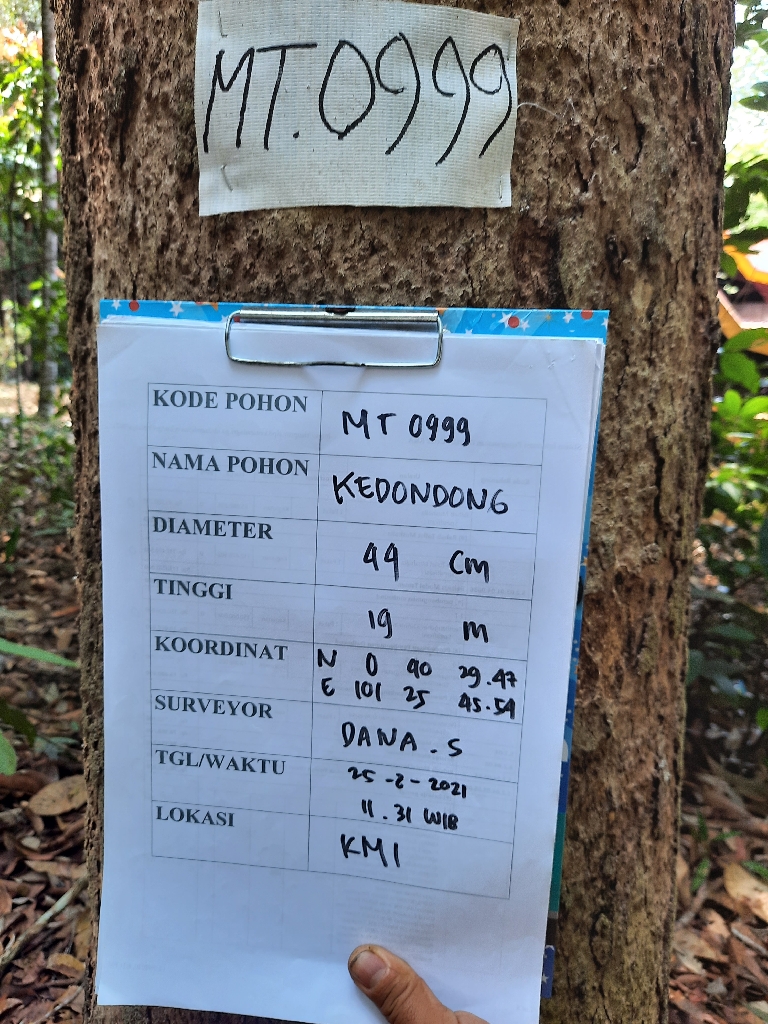 MT.0999
KODE POHON MT 0999
NAMA POHON KEDONDONG
DIAMETER 44 Cm
TINGGI 19 m
KOORDINAT N 0 40 29.47
E 101 25 45.54
SURVEYOR DANA.S
TGL/WAKTU 25-2-2021
11.31 WIB
LOKASI KMI